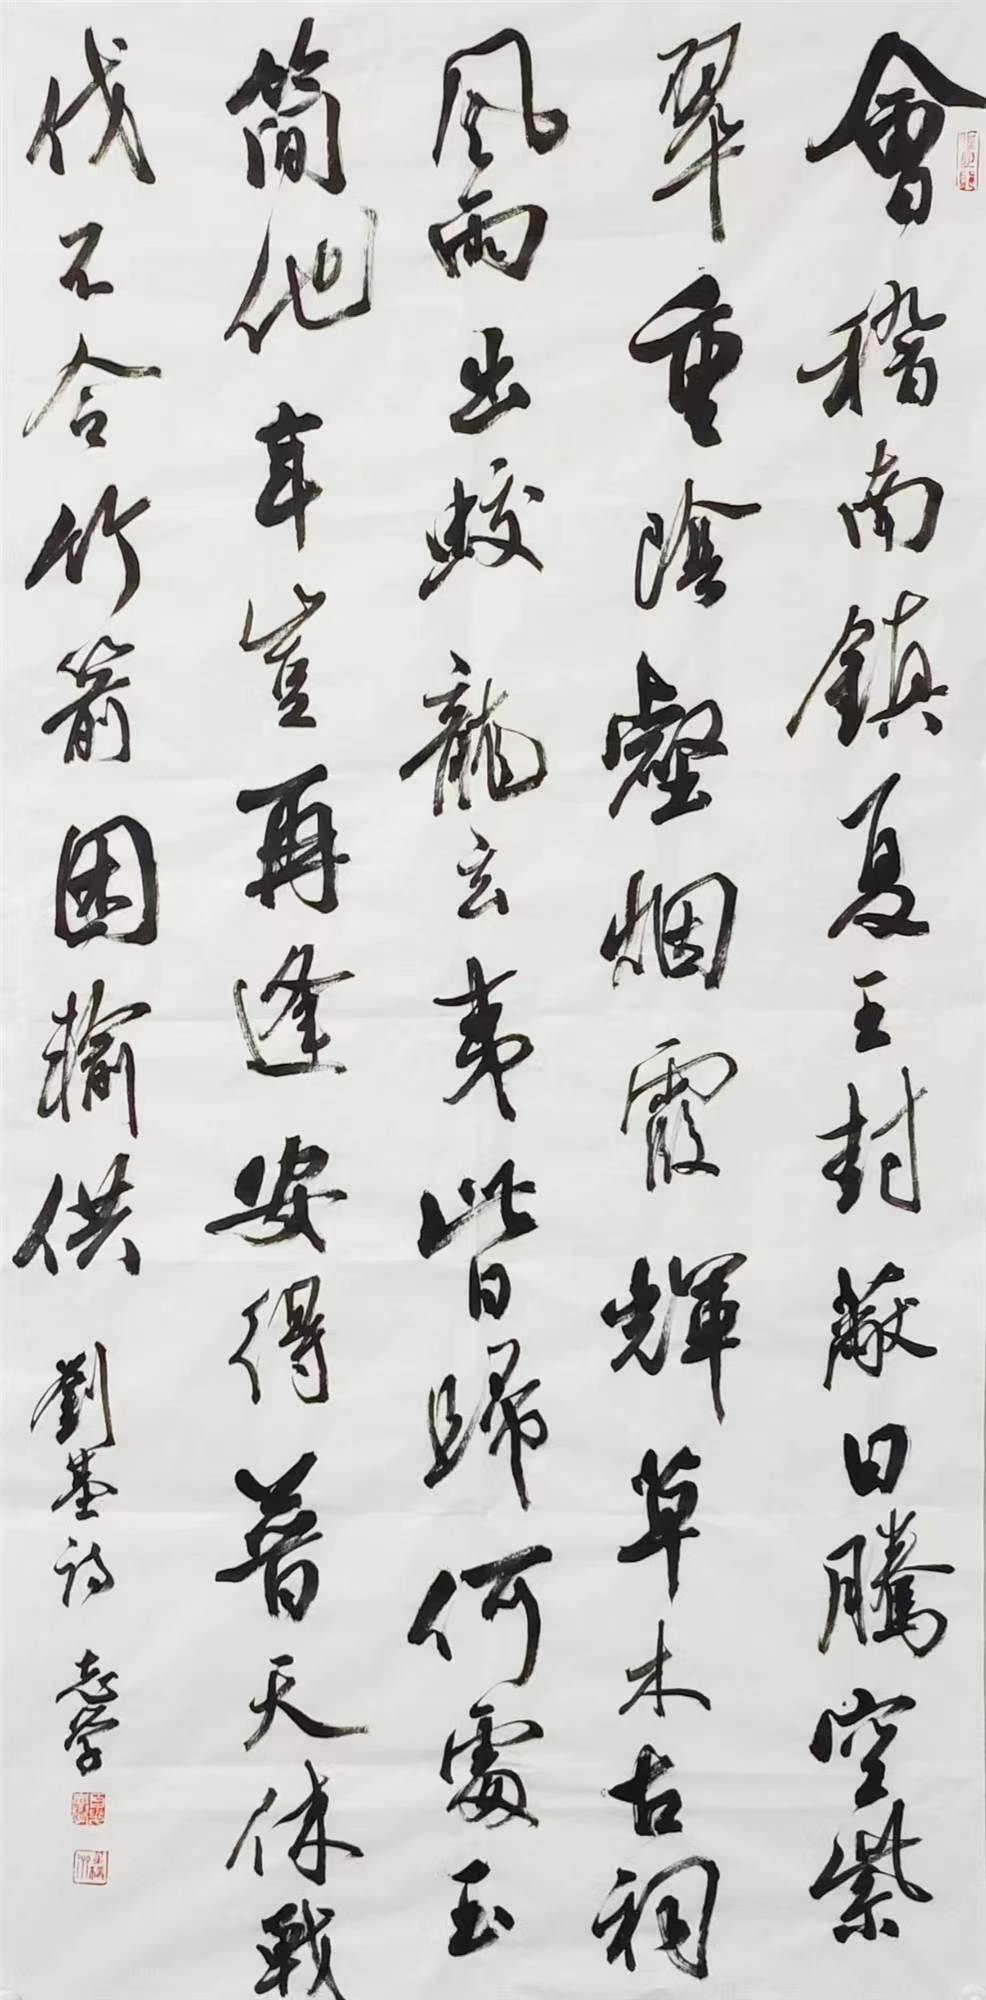 會稽南鎮夏王封蔽日騰空紫
翠重陰壑烟霞輝草木古祠
風雨出蛟龍玄夷此日歸何處玉
簡他年豈再逢安得普天休戰
伐不令竹箭困輸供 劉基詩 志學